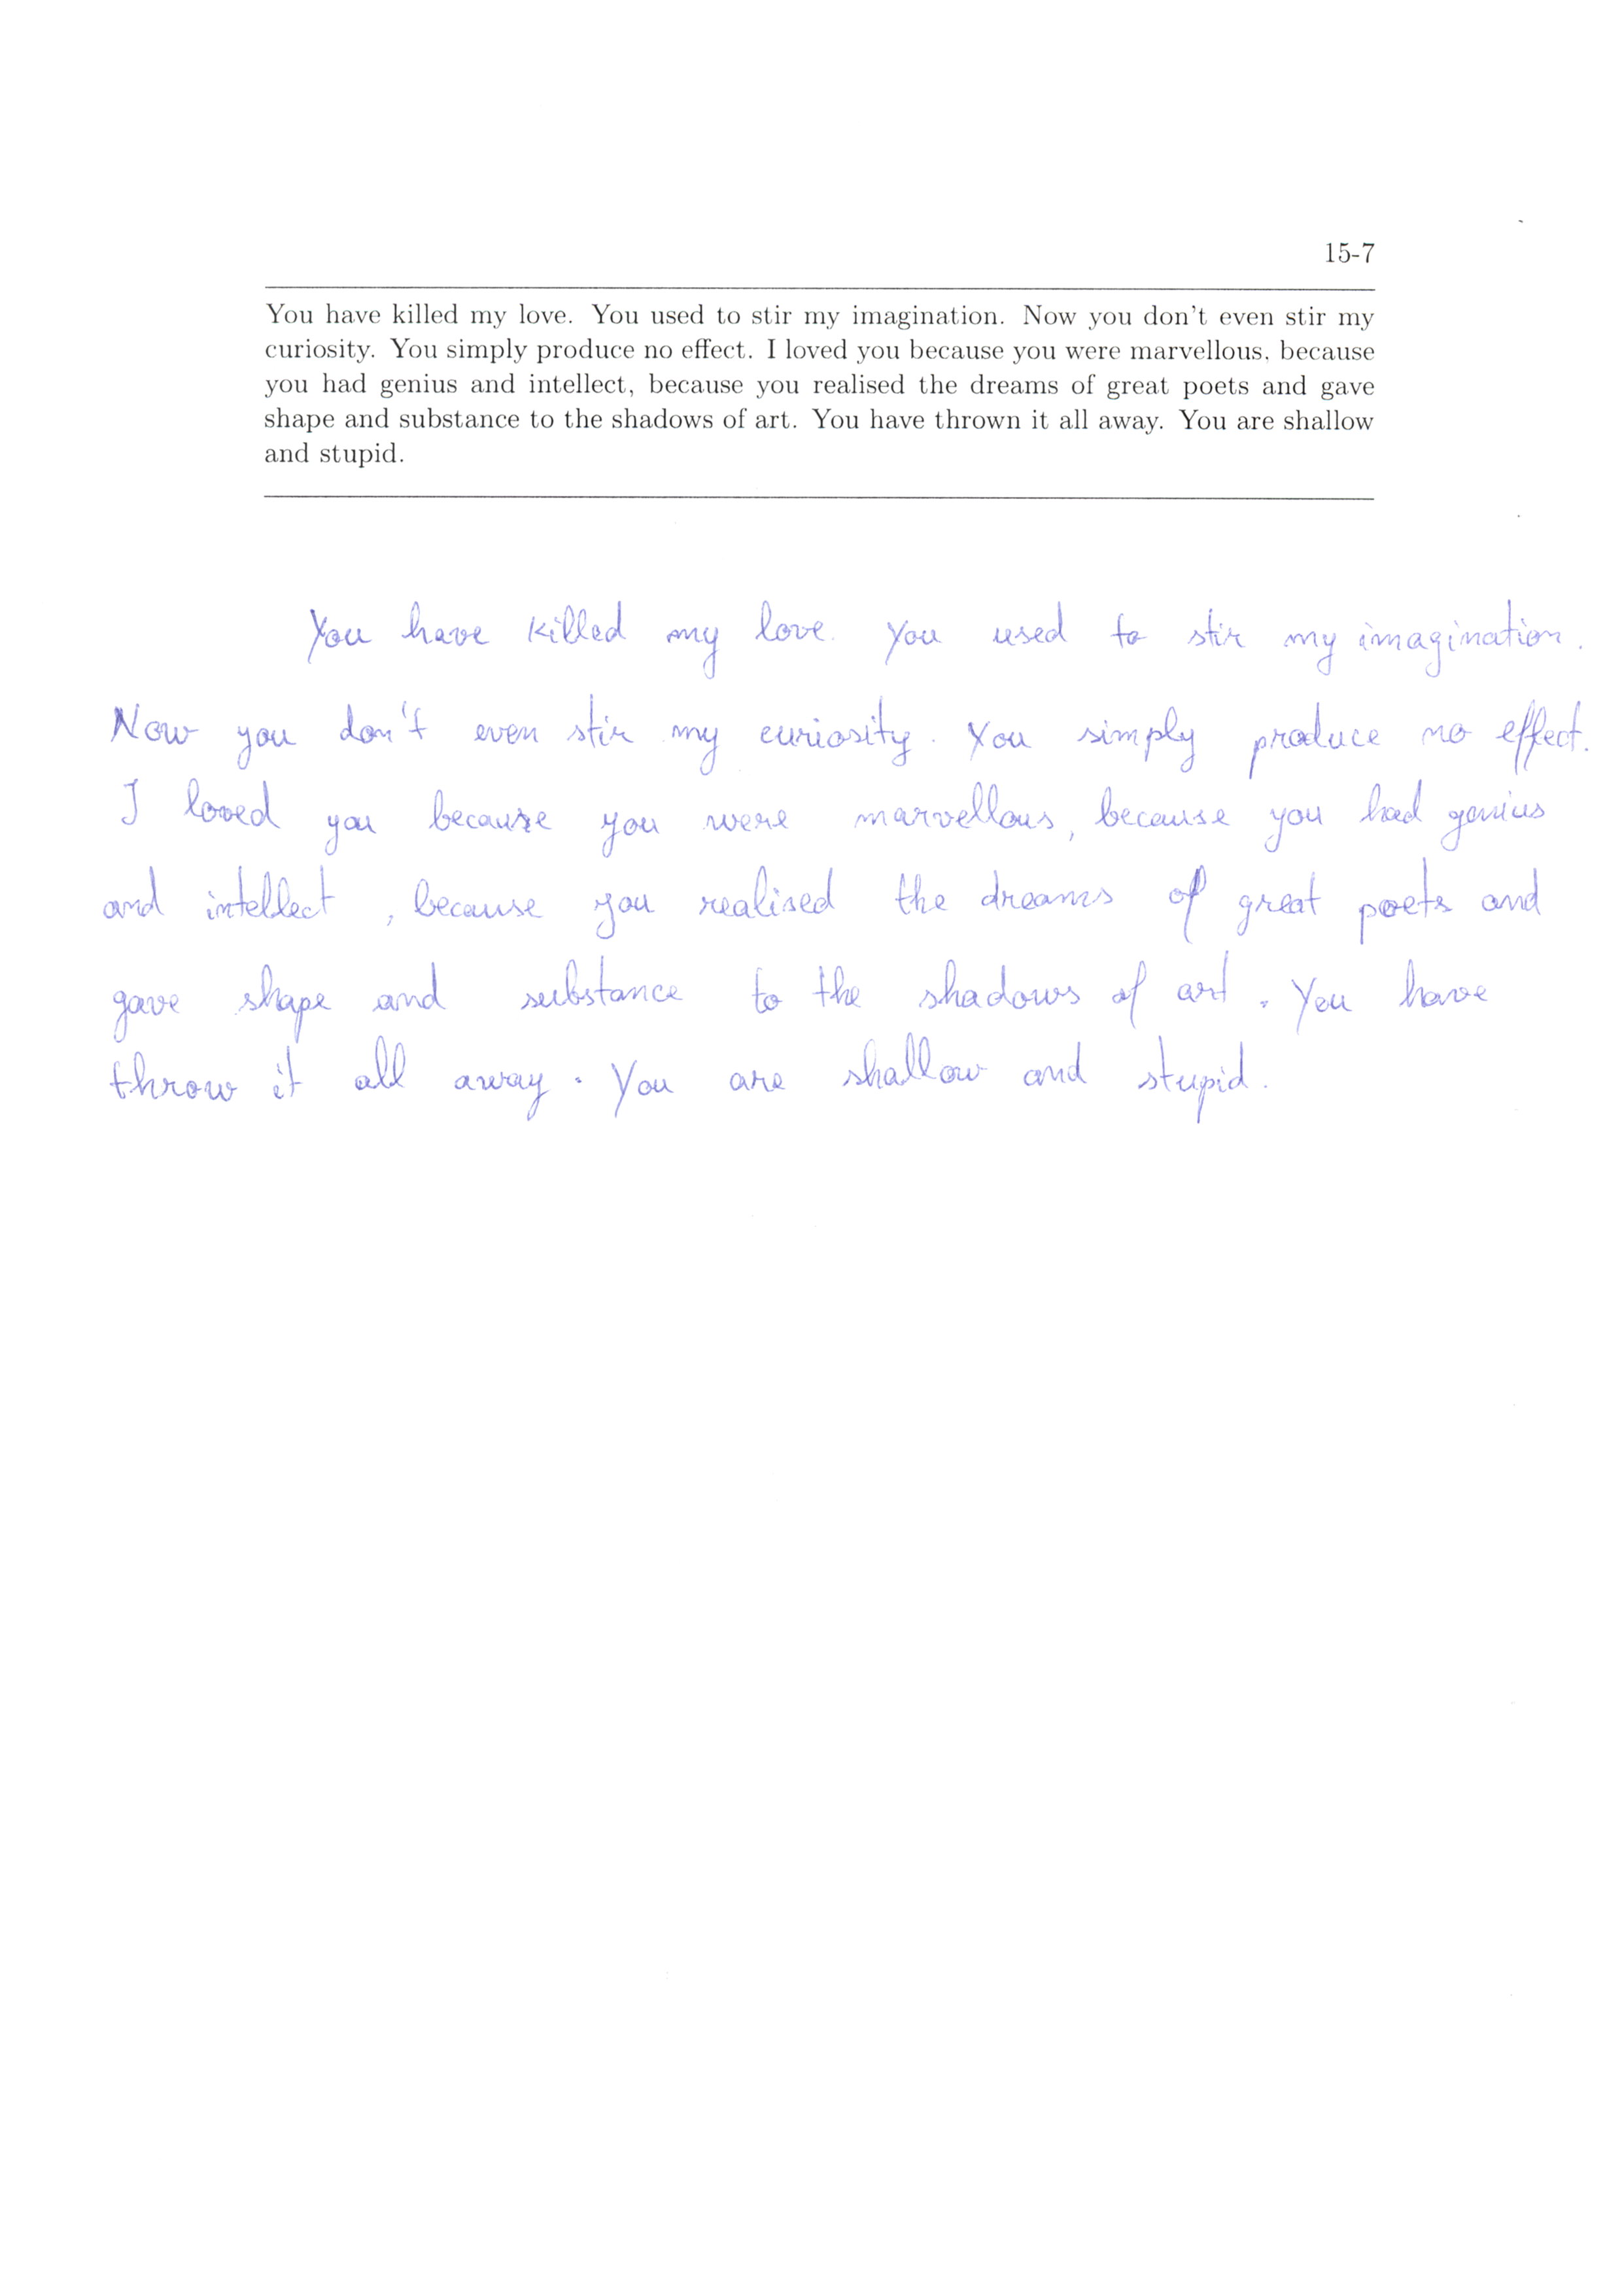 15-7
You have killed my love. You used to stir my imagination. Now you don't even stir my
curiosity. You simply produce no effect. I loved you because you were marvellous, because
you had genius and intellect, because you realised the dreams of great poets and gave
shape and substance to the shadows of art. You have thrown it all away. You are shallow
and stupid.
You have killed my love. You used to stir my imagination.
Now you don't even stir my curiosity. You simply produce no effect.
I loved you because you were marvellous, because you had genius
and intellect, because you realised the dreams of great poets and
gave shape and substance to the shadows of art. You have
throw it all away. You are shallow and stupid.